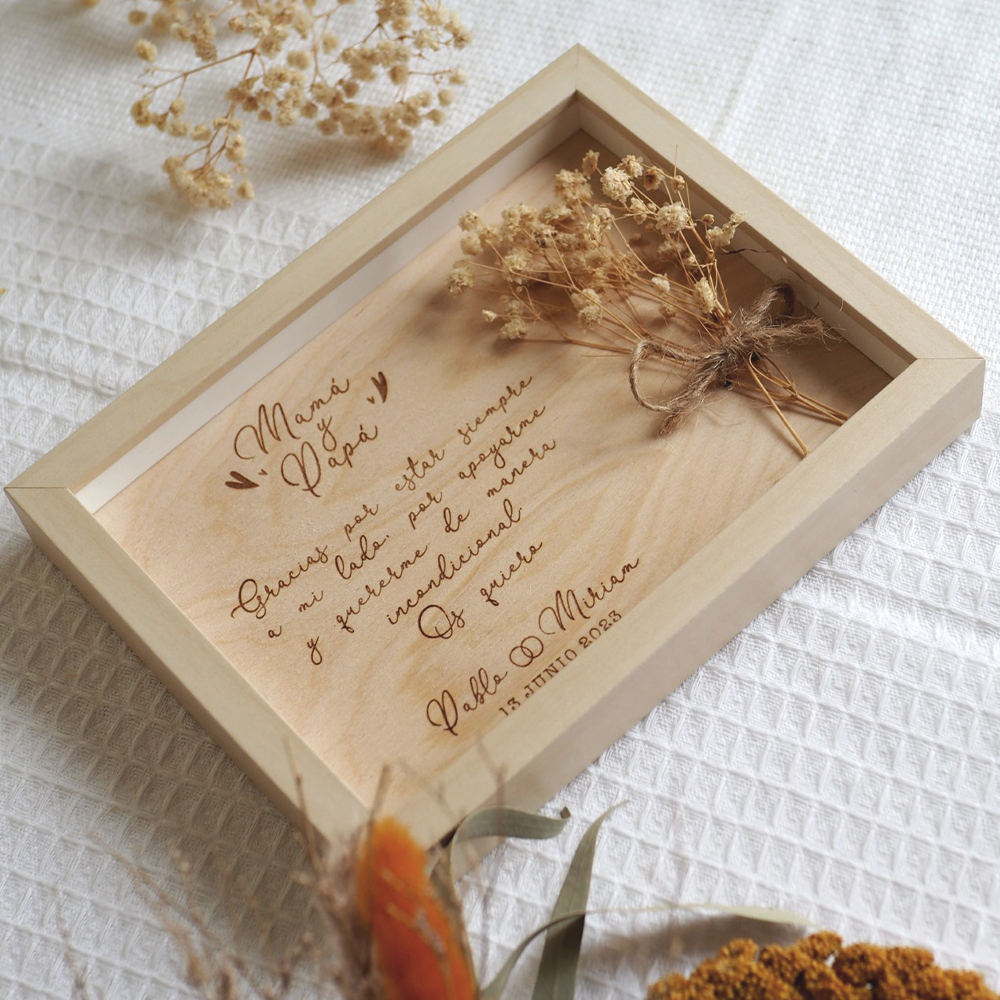 Mamá
y
Papá
Gracias por estar siempre
a mi lado, por apoyarme
y quererme de manera
incondicional.
Os quiero
Pablo Miriam
13 JUNIO 2023